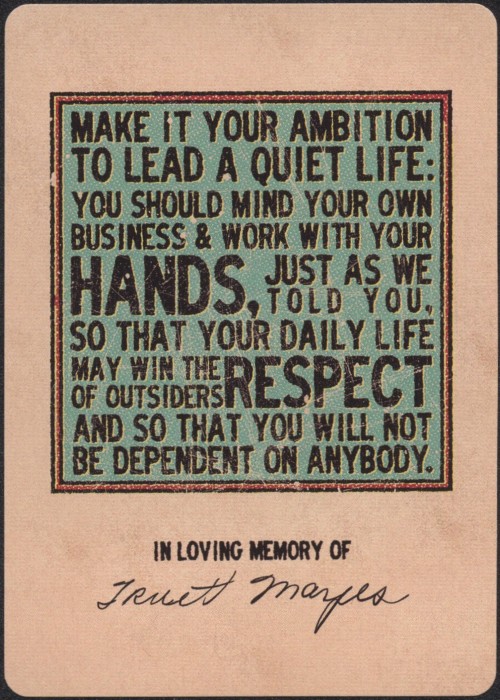 MAKE IT YOUR AMBITION
TO LEAD A QUIET LIFE:
YOU SHOULD MIND YOUR OWN
BUSINESS & WORK WITH YOUR
HANDS, JUST AS WE
TOLD YOU,
SO THAT YOUR DAILY LIFE
MAY WIN THE
OF OUTSIDERS RESPECT
AND SO THAT YOU WILL NOT
BE DEPENDENT ON ANYBODY.
IN LOVING MEMORY OF
Truett Mayes